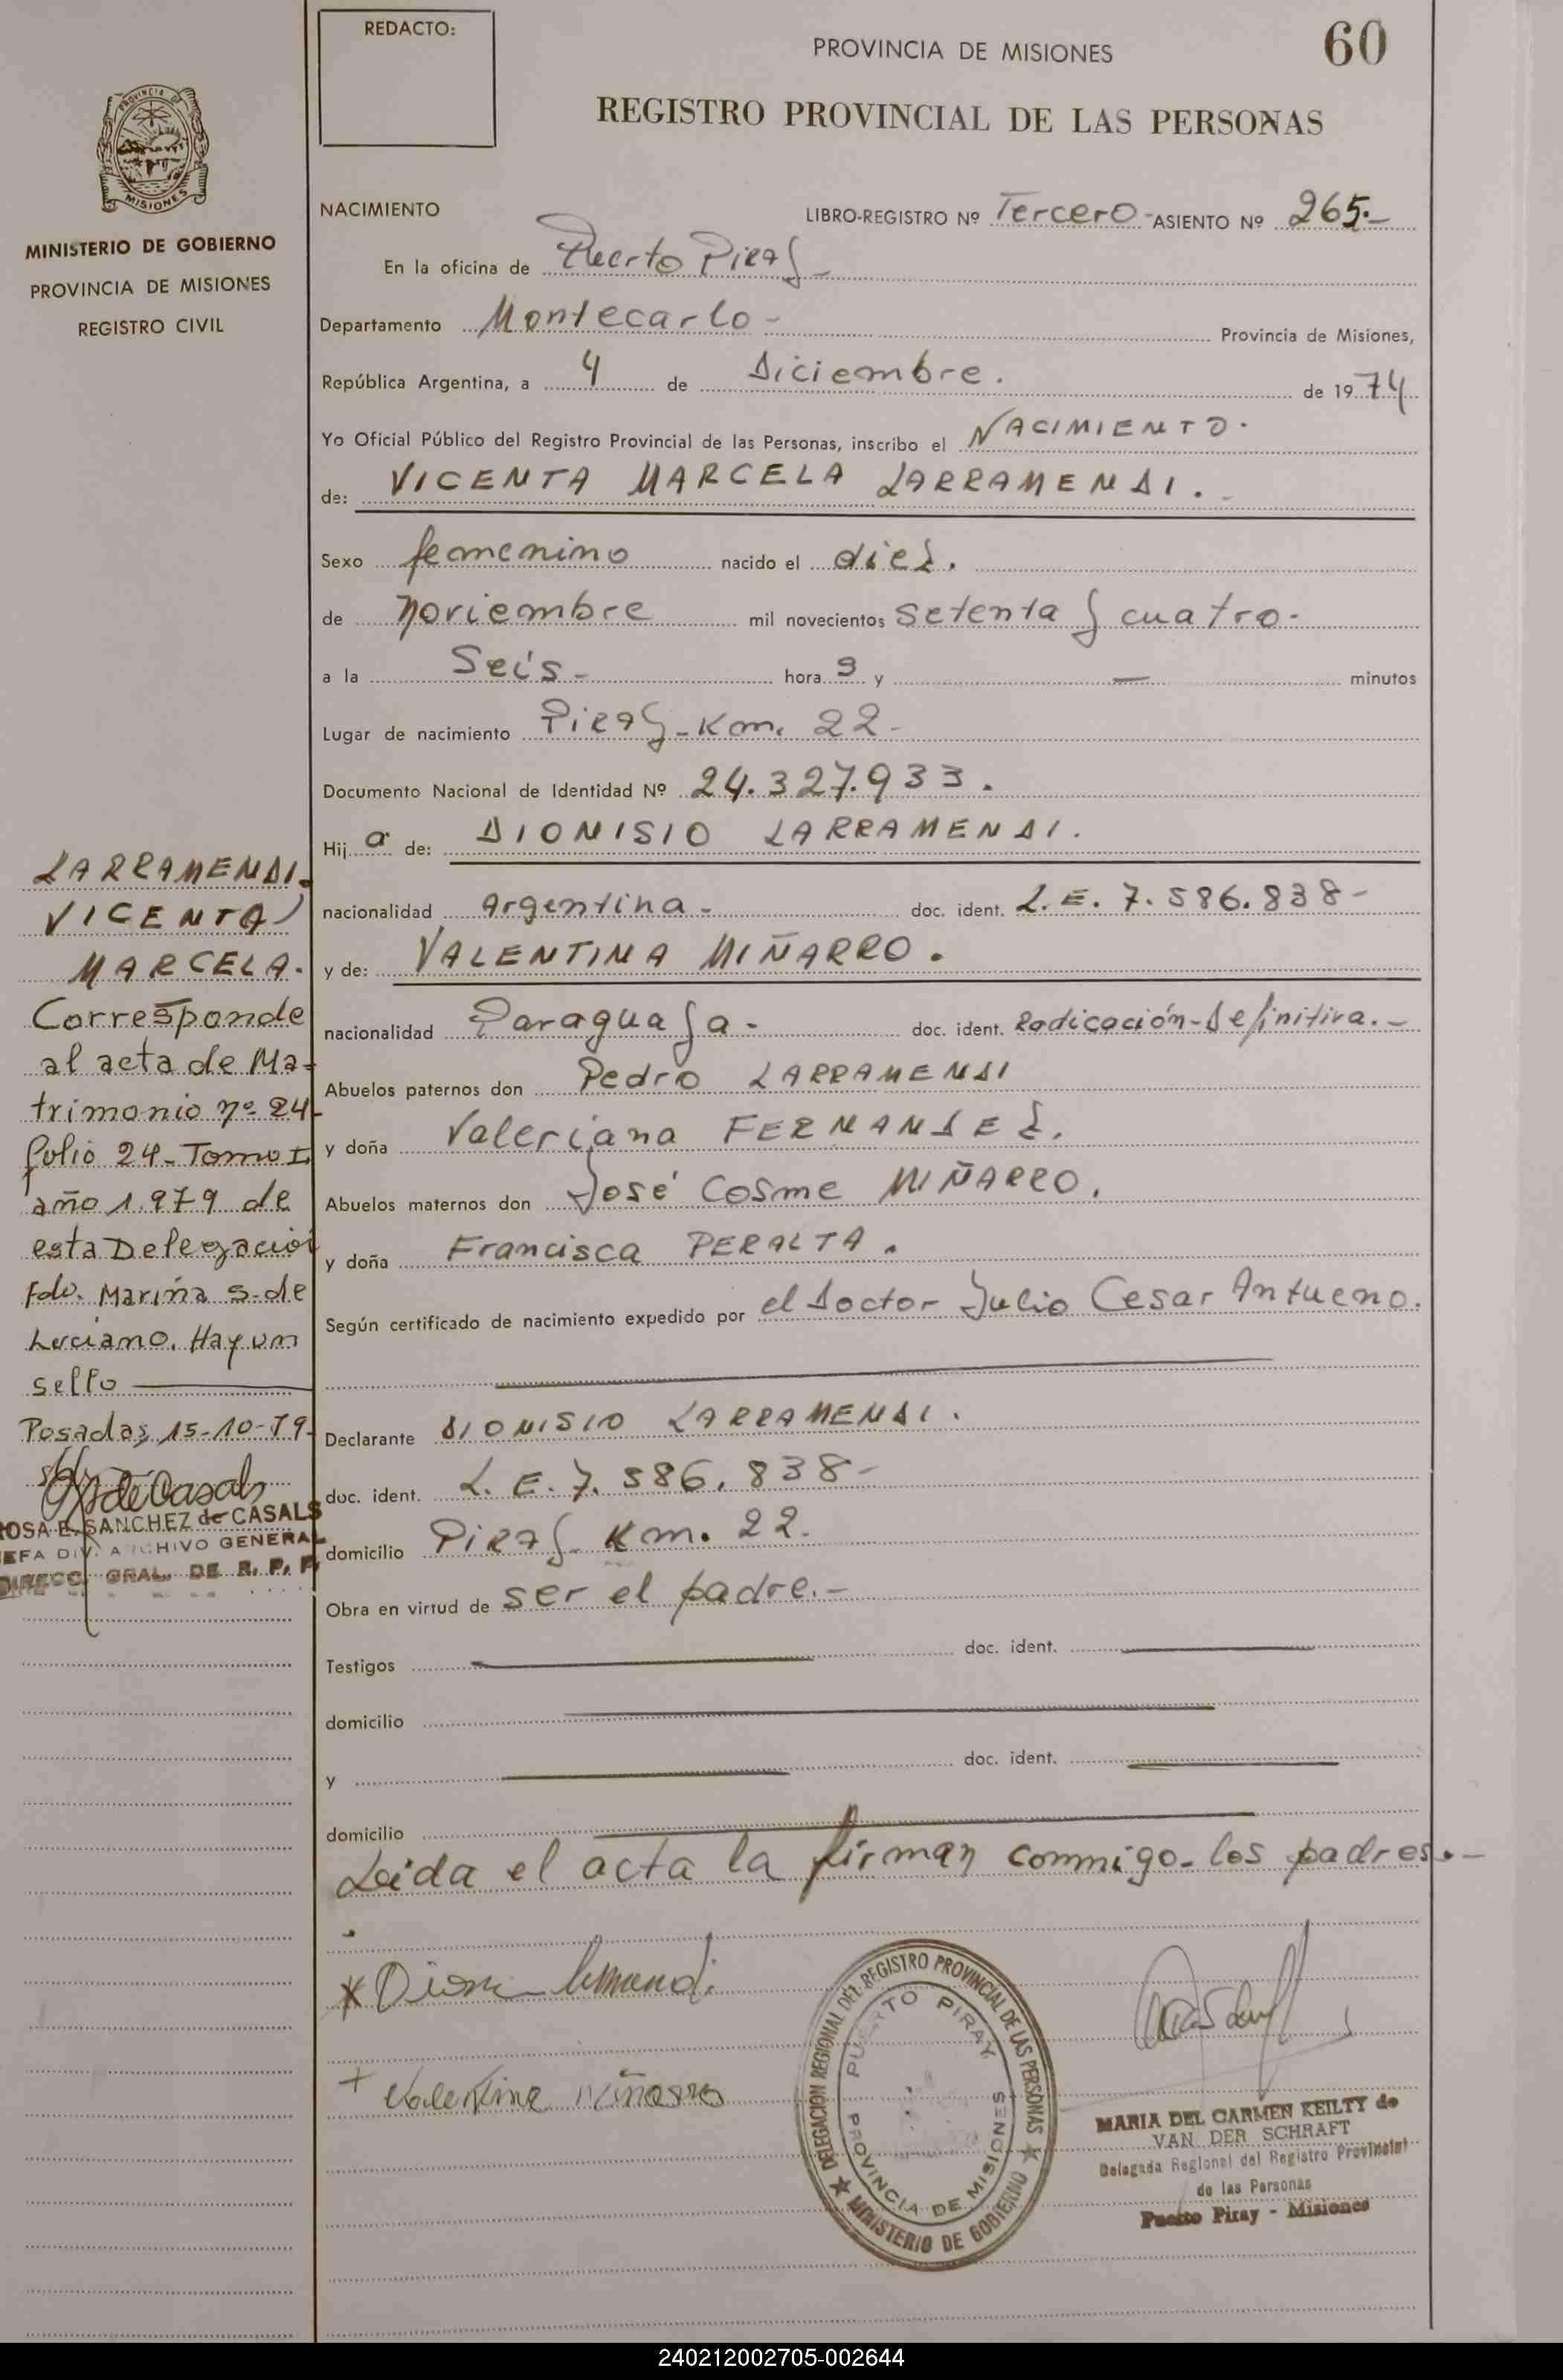 REDACTO:
PROVINCIA DE MISIONES
60
REGISTRO PROVINCIAL DE LAS PERSONAS
PROVINCIA DE
MISIONES
MINISTERIO DE GOBIERNO
PROVINCIA DE MISIONES
REGISTRO CIVIL
NACIMIENTO
LIBRO-REGISTRO Nº Tercero - ASIENTO Nº 265.-
En la oficina de Puerto Piray -
Departamento Montecarlo - Provincia de Misiones,
República Argentina, a 4 de Diciembre. de 1974
Yo Oficial Público del Registro Provincial de las Personas, inscribo el NACIMIENTO.
de: VICENTA MARCELA LARRAMENDI.
Sexo femenino nacido el diez.
de noviembre mil novecientos setenta y cuatro.
a la Seis - hora s y — minutos
Lugar de nacimiento Piray - Km. 22 -
Documento Nacional de Identidad Nº 24.327.933.
Hij a de: DIONISIO LARRAMENDI.
nacionalidad Argentina - doc. ident. L.E. 7.586.838 -
y de: VALENTINA MIÑARRO.
nacionalidad Paraguaya - doc. ident. Radicación-Definitiva.-
Abuelos paternos don Pedro LARRAMENDI
y doña Valeriana FERNANDEZ.
Abuelos maternos don José Cosme MIÑARRO.
y doña Francisca PERALTA.
Según certificado de nacimiento expedido por el Doctor Julio Cesar Antueno.
Declarante DIONISIO LARRAMENDI.
doc. ident. L.E. 7.586.838 -
domicilio Piray Km. 22.
Obra en virtud de ser el padre.-
Testigos doc. ident.
domicilio
y doc. ident.
domicilio
Leida el acta la firman conmigo los padres.-
LARRAMENDI.
VICENTA
MARCELA.
Corresponde
al acta de Ma-
trimonio nº 24
folio 24 - Tomo I
año 1.979 de
esta Delegación
Fdo. Marina S. de
Luciano. Hay un
sello
Posadas, 15-10-79
ROSA E. SANCHEZ de CASALS
JEFA DIV. ARCHIVO GENERAL
DIRECC. GRAL. DE R. P. P.
Valentina Miñarro
DELEGACION REGIONAL DEL REGISTRO PROVINCIAL DE LAS PERSONAS
PUERTO PIRAY
PROVINCIA DE MISIONES
MINISTERIO DE GOBIERNO
MARIA DEL CARMEN KEILTY de
VAN DER SCHRAFT
Delegada Regional del Registro Provincial
de las Personas
Puerto Piray - Misiones
240212002705-002644